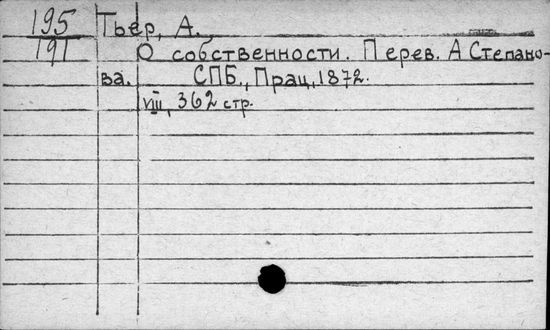 195 Тьер, А.
191 О собственности. Перев. А Степано-
ва. СПБ., Прац, 1872.
VIII, 362 стр.